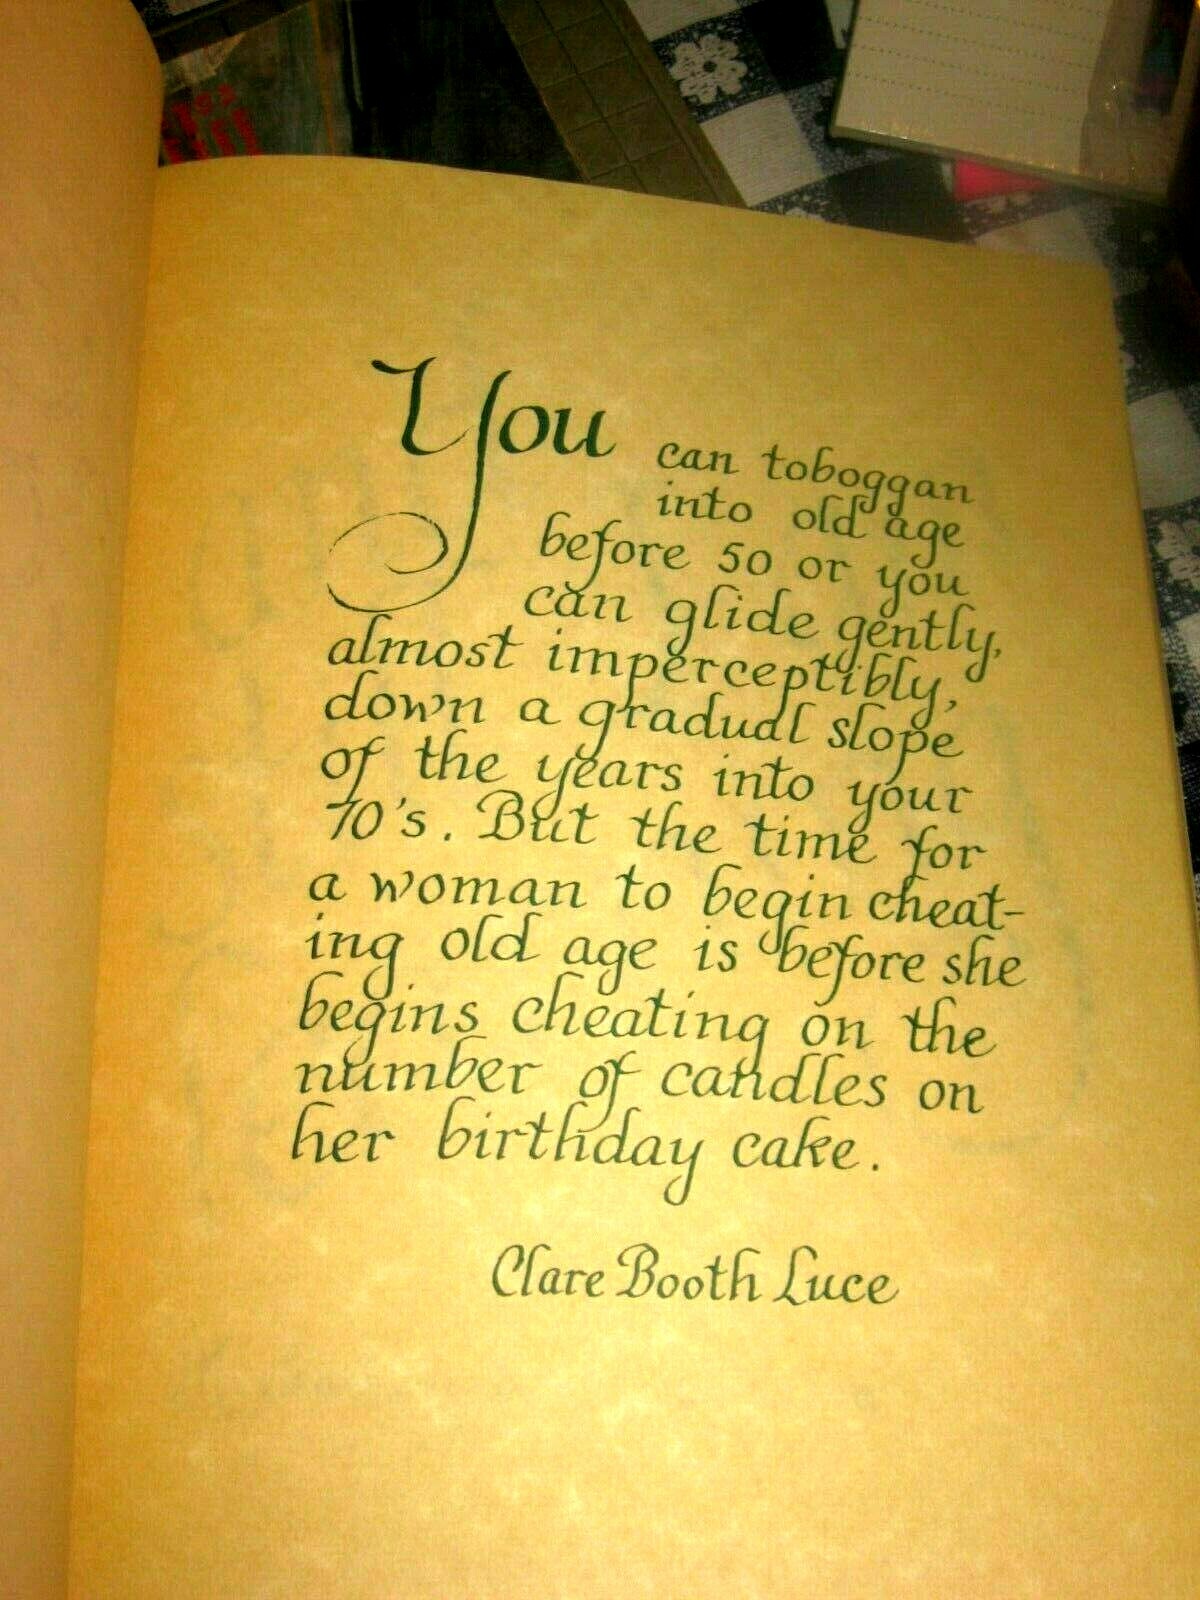 You can toboggan
into old age
before 50 or you
can glide gently,
almost imperceptibly,
down a gradual slope
of the years into your
70's. But the time for
a woman to begin cheat-
ing old age is before she
begins cheating on the
number of candles on
her birthday cake.
Clare Booth Luce